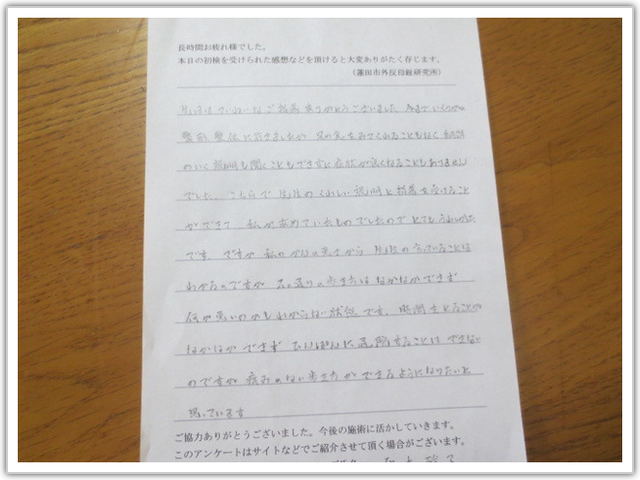 長時間お疲れ様でした。
本日の初検を受けられた感想などを頂けると大変ありがたく存じます。
（蓮田市外反母趾研究所）
先日はていねいなご指導ありがとうございました 今までいくつか
整形 整体に行きましたが 足の先をみてくれることもなく 納得
のいく説明も聞くこともできずに症状が良くなることもありません
でした。こちらで先生のくわしい説明と指導を受けること
ができて 私が求めていたものでしたので とてもうれしかった
です。ですが 私の から 先生の言っていることは
わかるのですが 思い通りの歩き方は なかなかできず
何が悪いのかもわからない状態です。時間をとることが
なかなかできず ひんぱんに通院することは できない
のですが 痛みのない歩き方ができるようになりたいと
思っています
ご協力ありがとうございました。今後の施術に活かしていきます。
このアンケートはサイトなどでご紹介させて頂く場合がございます。